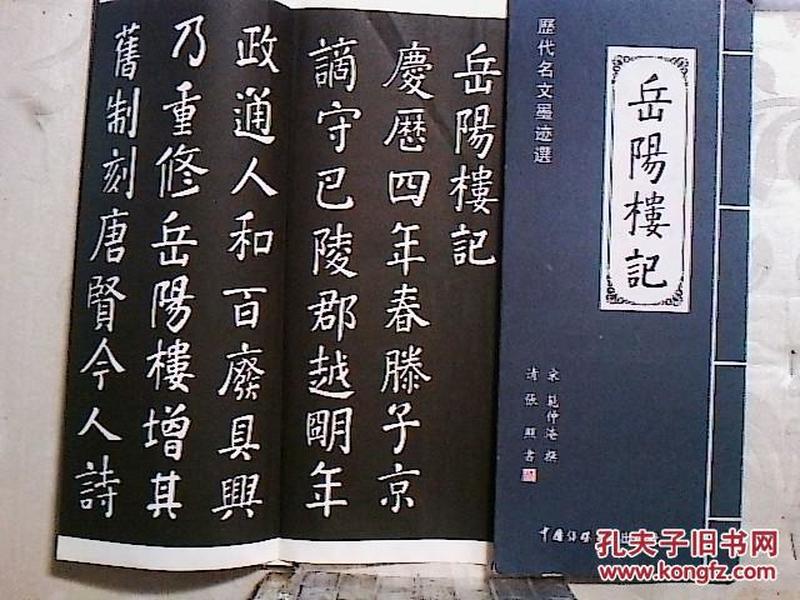 歷代名文墨迹選
岳陽樓記
宋 范仲淹 撰
清 張照 書
岳陽樓記
慶歷四年春滕子京
謫守巴陵郡越明年
政通人和百廢具興
乃重修岳陽樓增其
舊制刻唐賢今人詩
孔夫子旧书网
www.kongfz.com